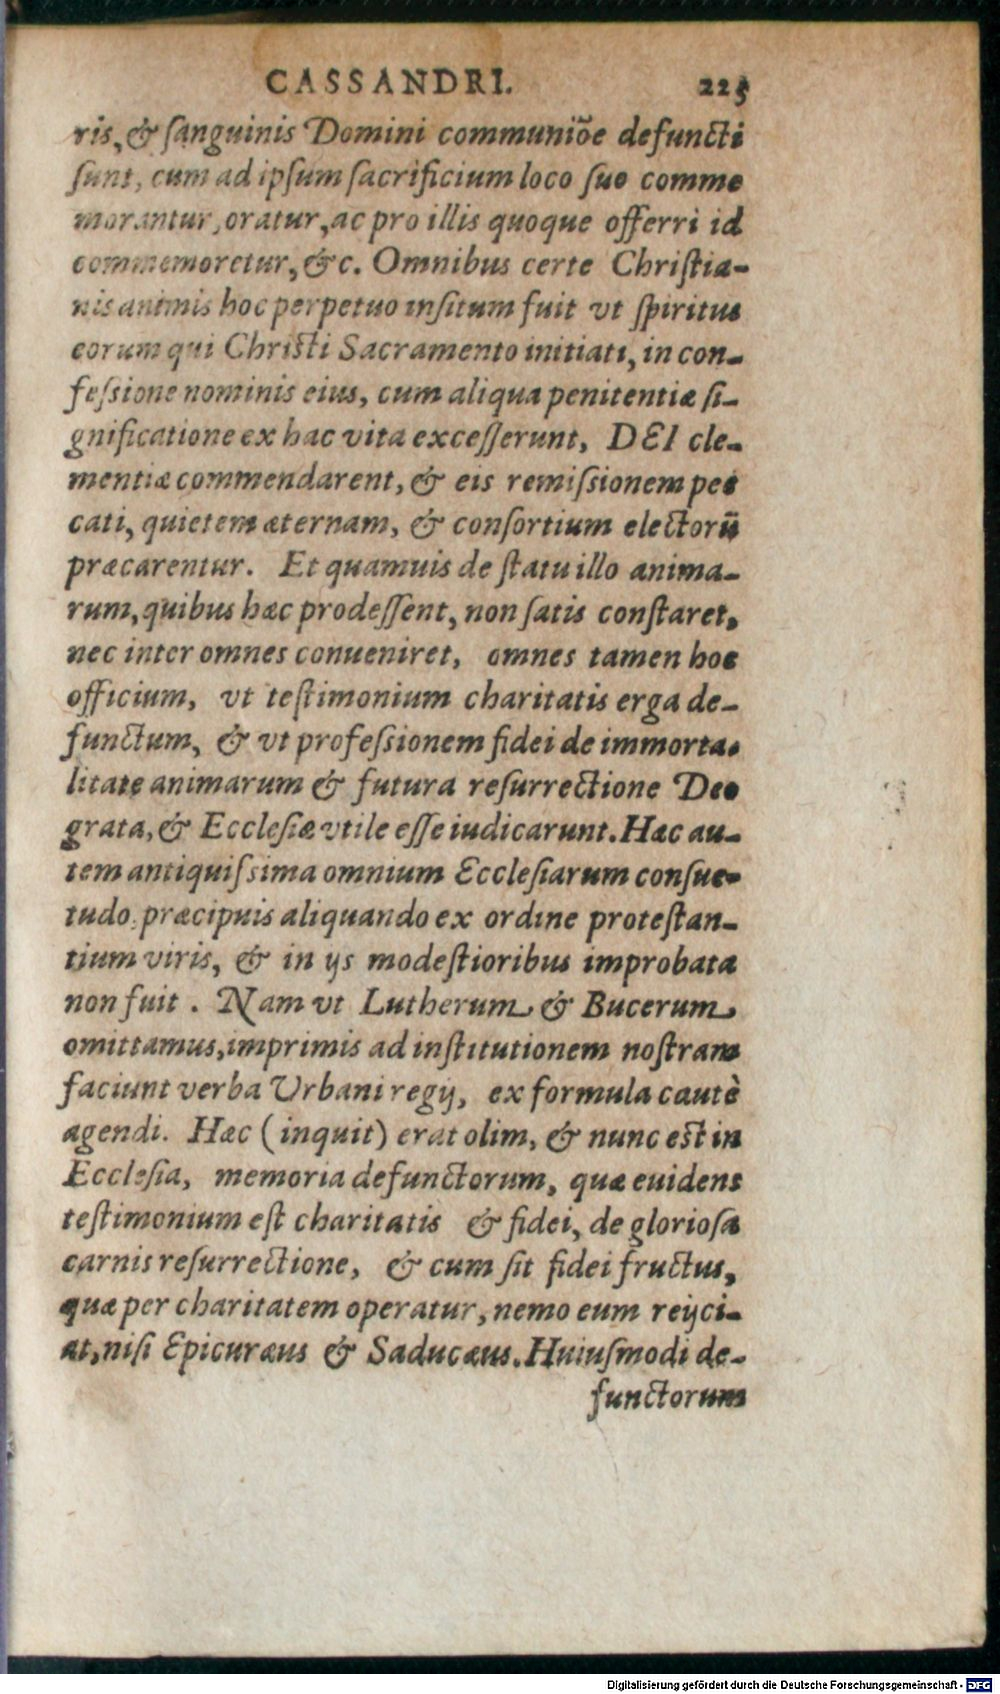 CASSANDRI. 225
ris, & sanguinis Domini communiõe defuncti
sunt, cum ad ipsum sacrificium loco suo comme
morantur, oratur, ac pro illis quoque offerri id
commemoretur, &c. Omnibus certe Christia-
nis animis hoc perpetuo insitum fuit vt spiritus
eorum qui Christi Sacramento initiati, in con-
fessione nominis eius, cum aliqua penitentiæ si-
gnificatione ex hac vita excesserunt, DEI cle-
mentiæ commendarent, & eis remissionem pec
cati, quietem æternam, & consortium electorũ
præcarentur. Et quamuis de statu illo anima-
rum, quibus hæc prodessent, non satis constaret,
nec inter omnes conueniret, omnes tamen hoc
officium, vt testimonium charitatis erga de-
functum, & vt professionem fidei de immorta-
litate animarum & futura resurrectione Deo
grata, & Ecclesiæ vtile esse iudicarunt. Hæc au-
tem antiquissima omnium Ecclesiarum consue-
tudo præcipuis aliquando ex ordine protestan-
tium viris, & in ijs modestioribus improbata
non fuit. Nam vt Lutherum & Bucerum
omittamus, imprimis ad institutionem nostram
faciunt verba Urbani regij, ex formula cautè
agendi. Hæc (inquit) erat olim, & nunc est in
Ecclesia, memoria defunctorum, quæ euidens
testimonium est charitatis & fidei, de gloriosa
carnis resurrectione, & cum sit fidei fructus,
quæ per charitatem operatur, nemo eum reijci-
at, nisi Epicuræus & Saducæus. Huiusmodi de-
functorum
Digitalisierung gefördert durch die Deutsche Forschungsgemeinschaft - DFG